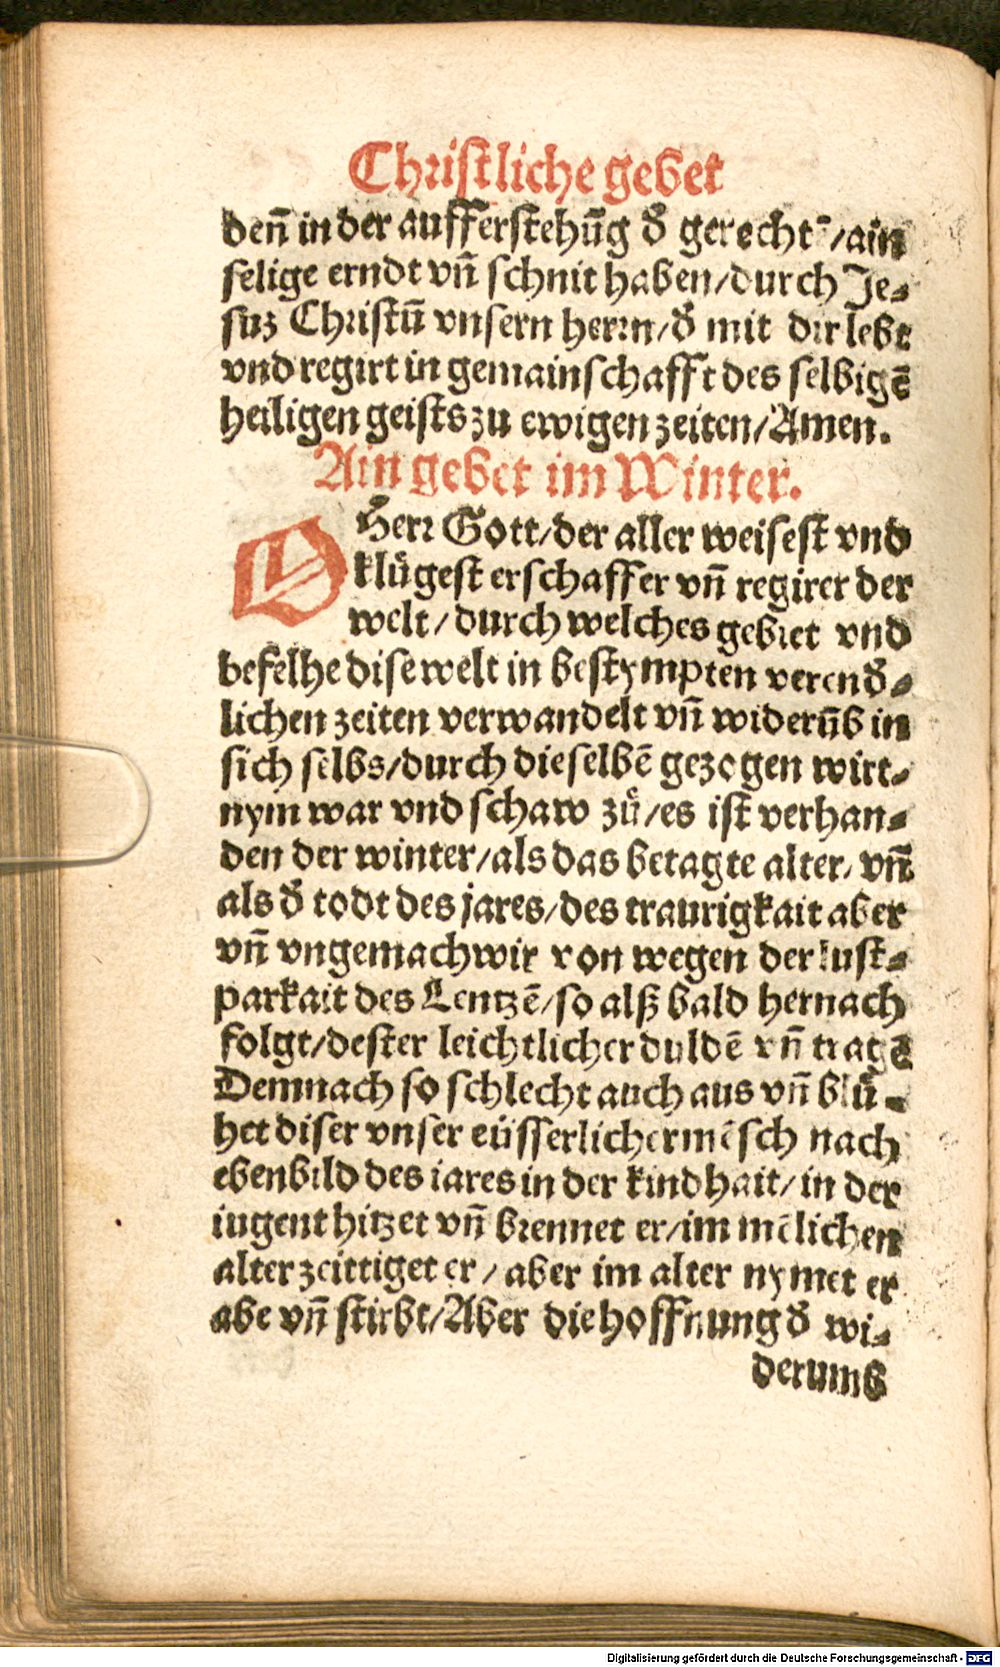 Christliche gebet
deñ in der aufferstehūg d̄ gerechtē/ain
selige erndt vn̄ schnit haben/durch Je⸗
suz Christū vnsern herrn/d̄ mit dir lebt
vnd regirt in gemainschafft des selbigē
heiligen geists zu ewigen zeiten/Amen.
Ain gebet im Winter.
O Herr Gott/der aller weisest vnd
klůgest erschaffer vn̄ regirer der
welt/durch welches gebiet vnd
befelhe dise welt in bestympten verend̄⸗
lichen zeiten verwandelt vn̄ widerūb in
sich selbs/durch die selbē gezogen wirt⸗
nym war vnd schaw zů/es ist verhan⸗
den der winter/als das betagte alter/vn̄
als d̄ todt des jares/des traurigkait aber
vn̄ vngemach wir von wegen der lust⸗
parkait des Lentzē/so alß bald hernach
folgt/dester leichtlicher duldē vn̄ tragē
Demnach so schlecht auch aus vn̄ blů⸗
het diser vnser eüsserlicher mēsch nach
ebenbild des iares in der kindhait/in der
iugent hitzet vn̄ brennet er/im mēlichen
alter zeittiget er/aber im alter nymet er
abe vn̄ stirbt/Aber die hoffnung d̄ wi⸗
derumb
Digitalisierung gefördert durch die Deutsche Forschungsgemeinschaft - DFG